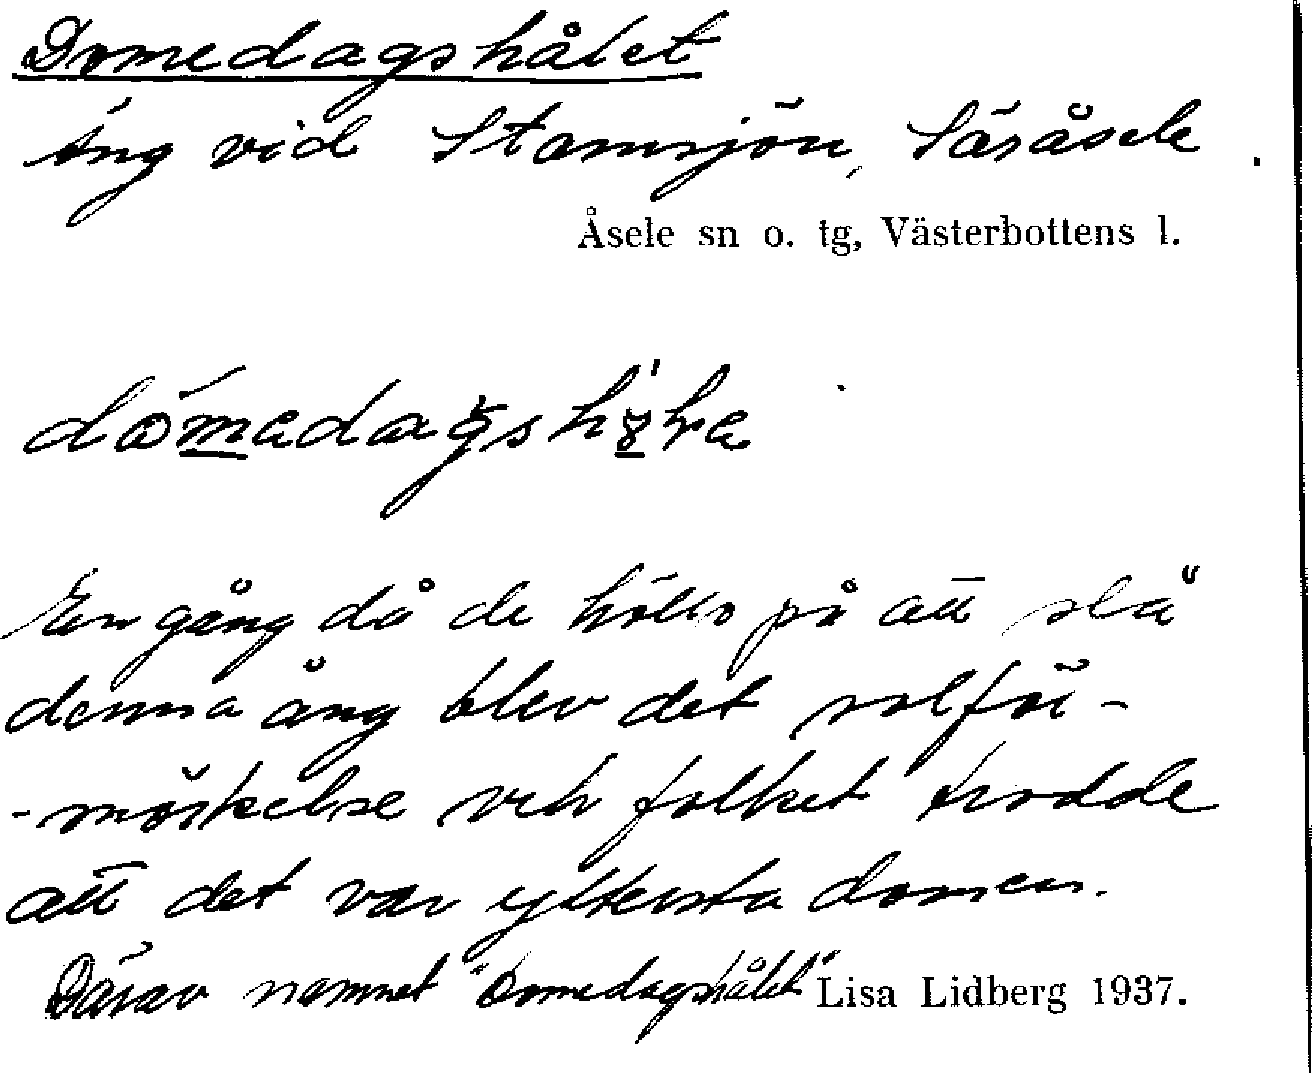 Domedagshålet
äng vid Stamsjön, Säråsele.
Åsele sn o. tg, Västerbottens l.
En gång då de hölls på att slå
denna äng blev det solför-
-mörkelse och folket trodde
att det var yttersta domen.
Därav namnet "Domedagshålet" Lisa Lidberg 1937.